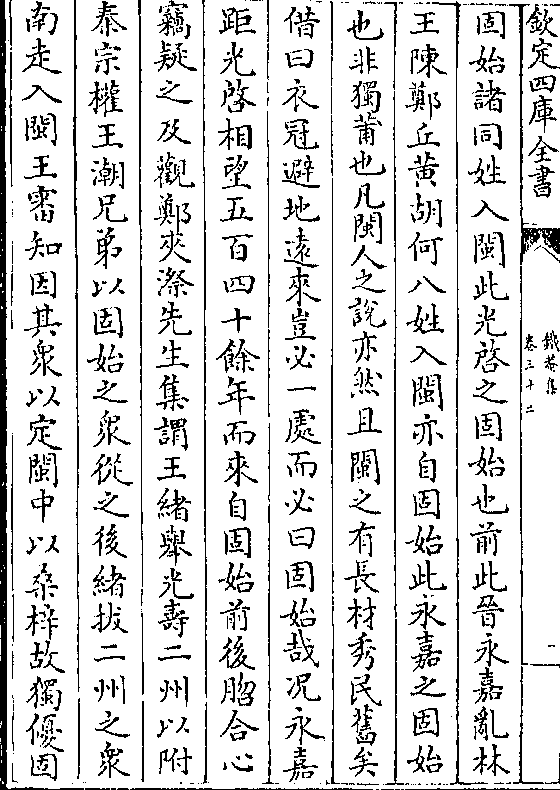 欽定四庫全書
鐵菴集
卷三十二
固始諸同姓入閩此光啓之固始也前此晉永嘉亂林
王陳鄭丘黃胡何八姓入閩亦自固始此永嘉之固始
也非獨莆也凡閩人之說亦然且閩之有長材秀民舊矣
借曰衣冠避地遠來豈必一處而必曰固始哉况永嘉
距光啓相望五百四十餘年而來自固始前後脗合心
竊疑之及觀鄭夾漈先生集謂王緒舉光壽二州以附
秦宗權王潮兄弟以固始之衆從之後緒拔二州之衆
南走入閩王審知因其衆以定閩中以桑梓故獨優固